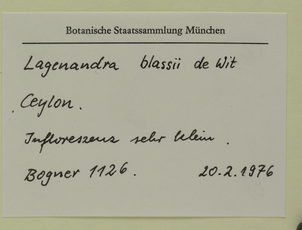 Botanische Staatssammlung München
Lagenandra blassii de Wit
Ceylon.
Infloreszenz sehr klein.
Bogner 1126. 20.2.1976